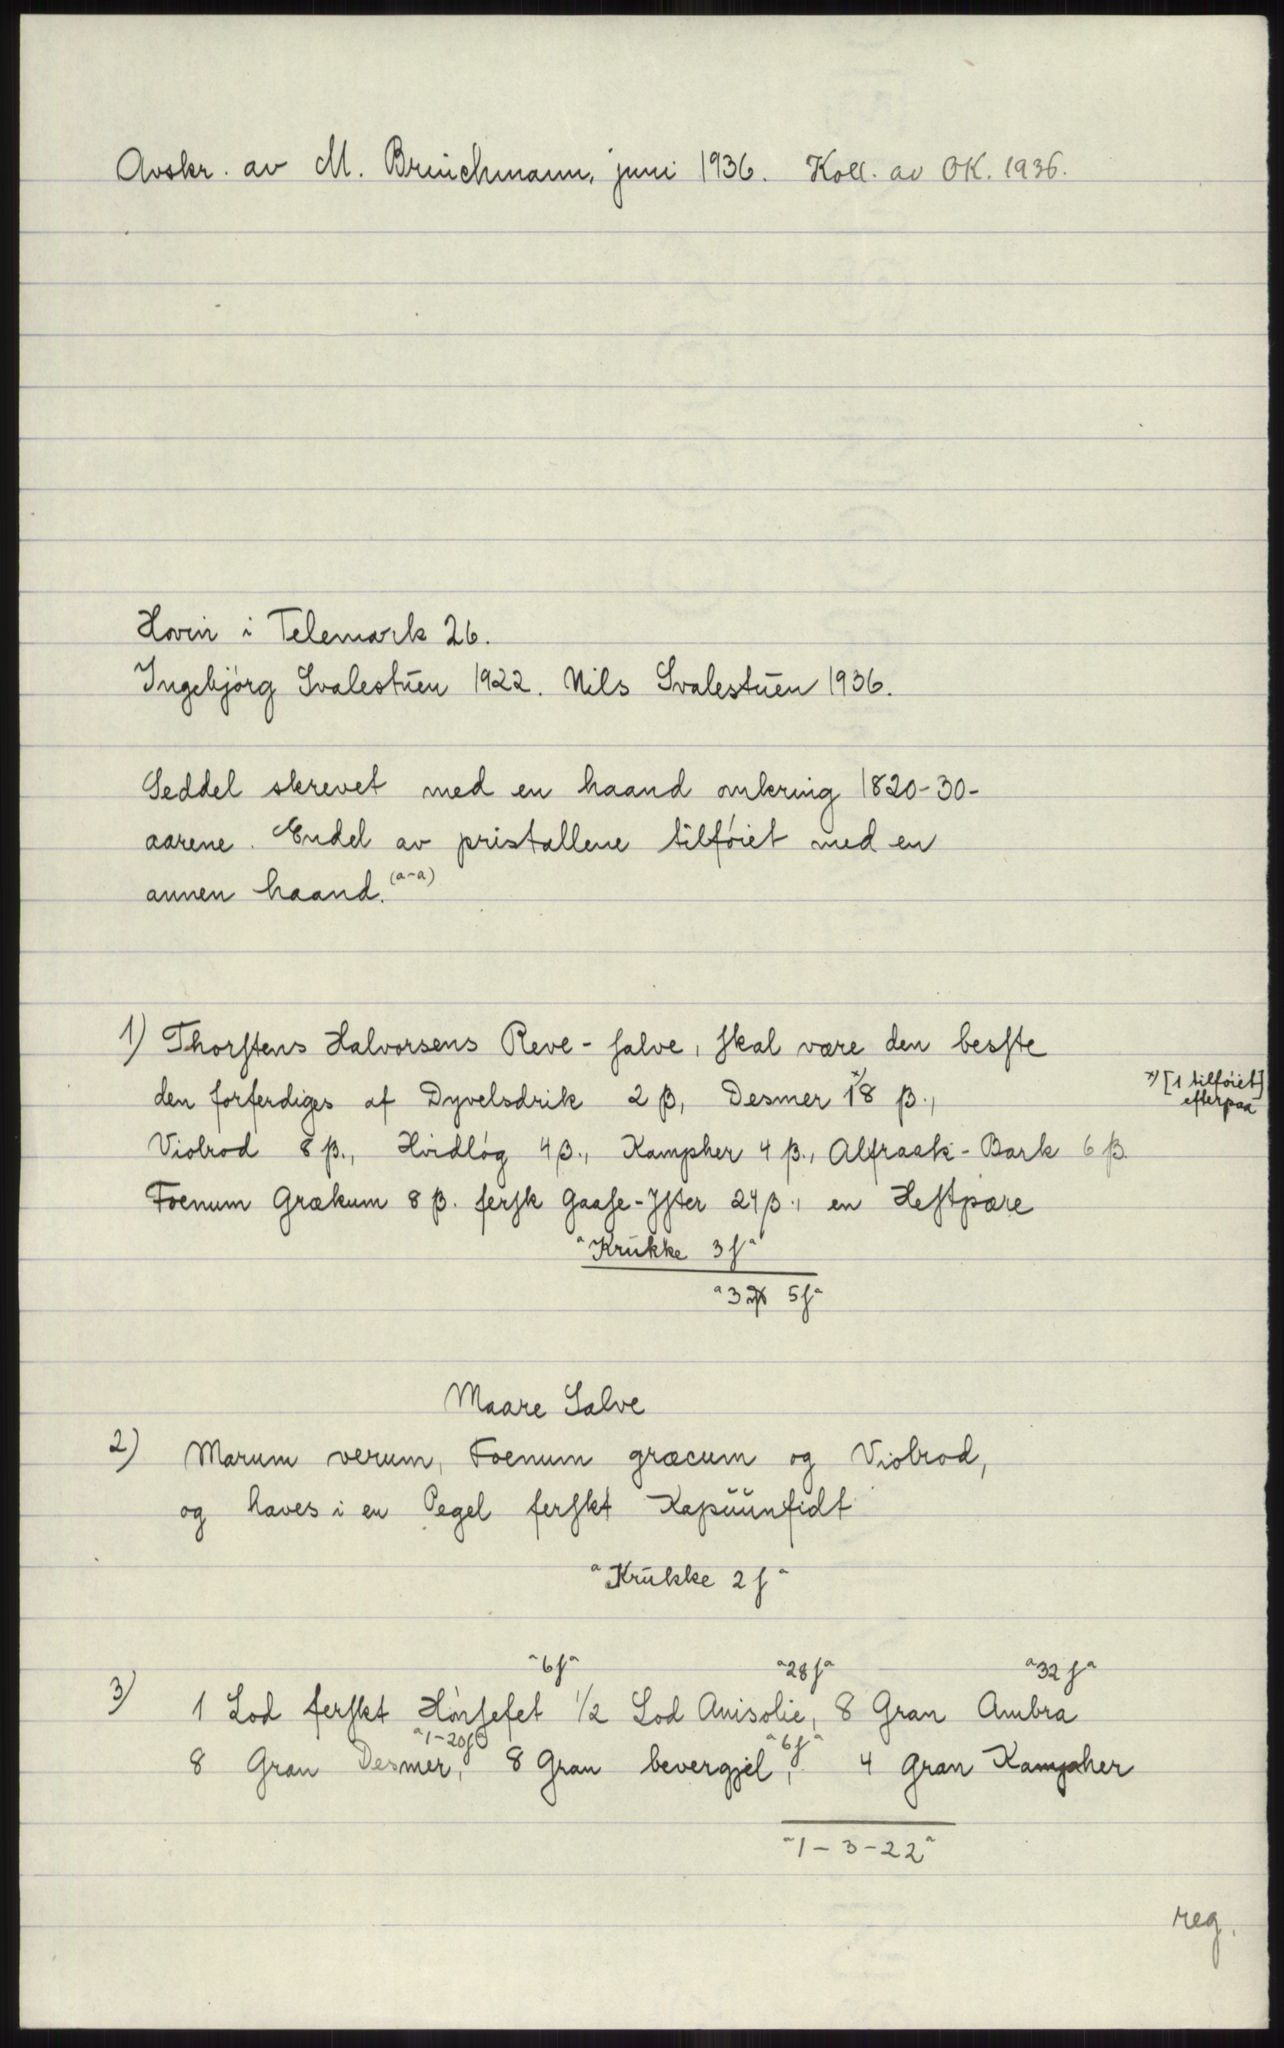 Avskr. av M. Brinchmann, juni 1936. Koll. av OK. 1936.
Hovin i Telemark 26.
Ingebjörg Svalestuen 1922. Nils Svalestuen 1936.
Seddel skrevet med en haand omkring 1820-30-
aarene. Endel av pristallene tilföiet med en
annen haand. (a-a)
1) Thorstens Halvorsens Reve-salve, skal være den besste
den forferdiges af Dyvelsdrik 2 β, Desmer 1x)8 β.,
x) [1 tilföiet]
efterpaa
Violrod 8 β., Hvidløg 4 β., Kampher 4 β., Alfraak-Bark 6 β
Foenum Grækum 8 β. fersk Gaase-Ister 24 β., en Hestpære
a Krukke 3 ſ a
a 3 5 ſ a
Maare Salve
2) Marum verum, Foenum græcum og Violrod,
og haves i en Pegel ferskt Kapuunfidt
a Krukke 2 ſ a
a 6 ſ a a 28 ſ a a 32 ſ a
3) 1 Lod ferskt Hönsefet 1/2 Lod Anisolie, 8 Gran Ambra
a 1-20 ſ a a 6 ſ a
8 Gran Desmer, 8 Gran bevergjel, 4 Gran Kampher
a 1-3-22 a
reg.